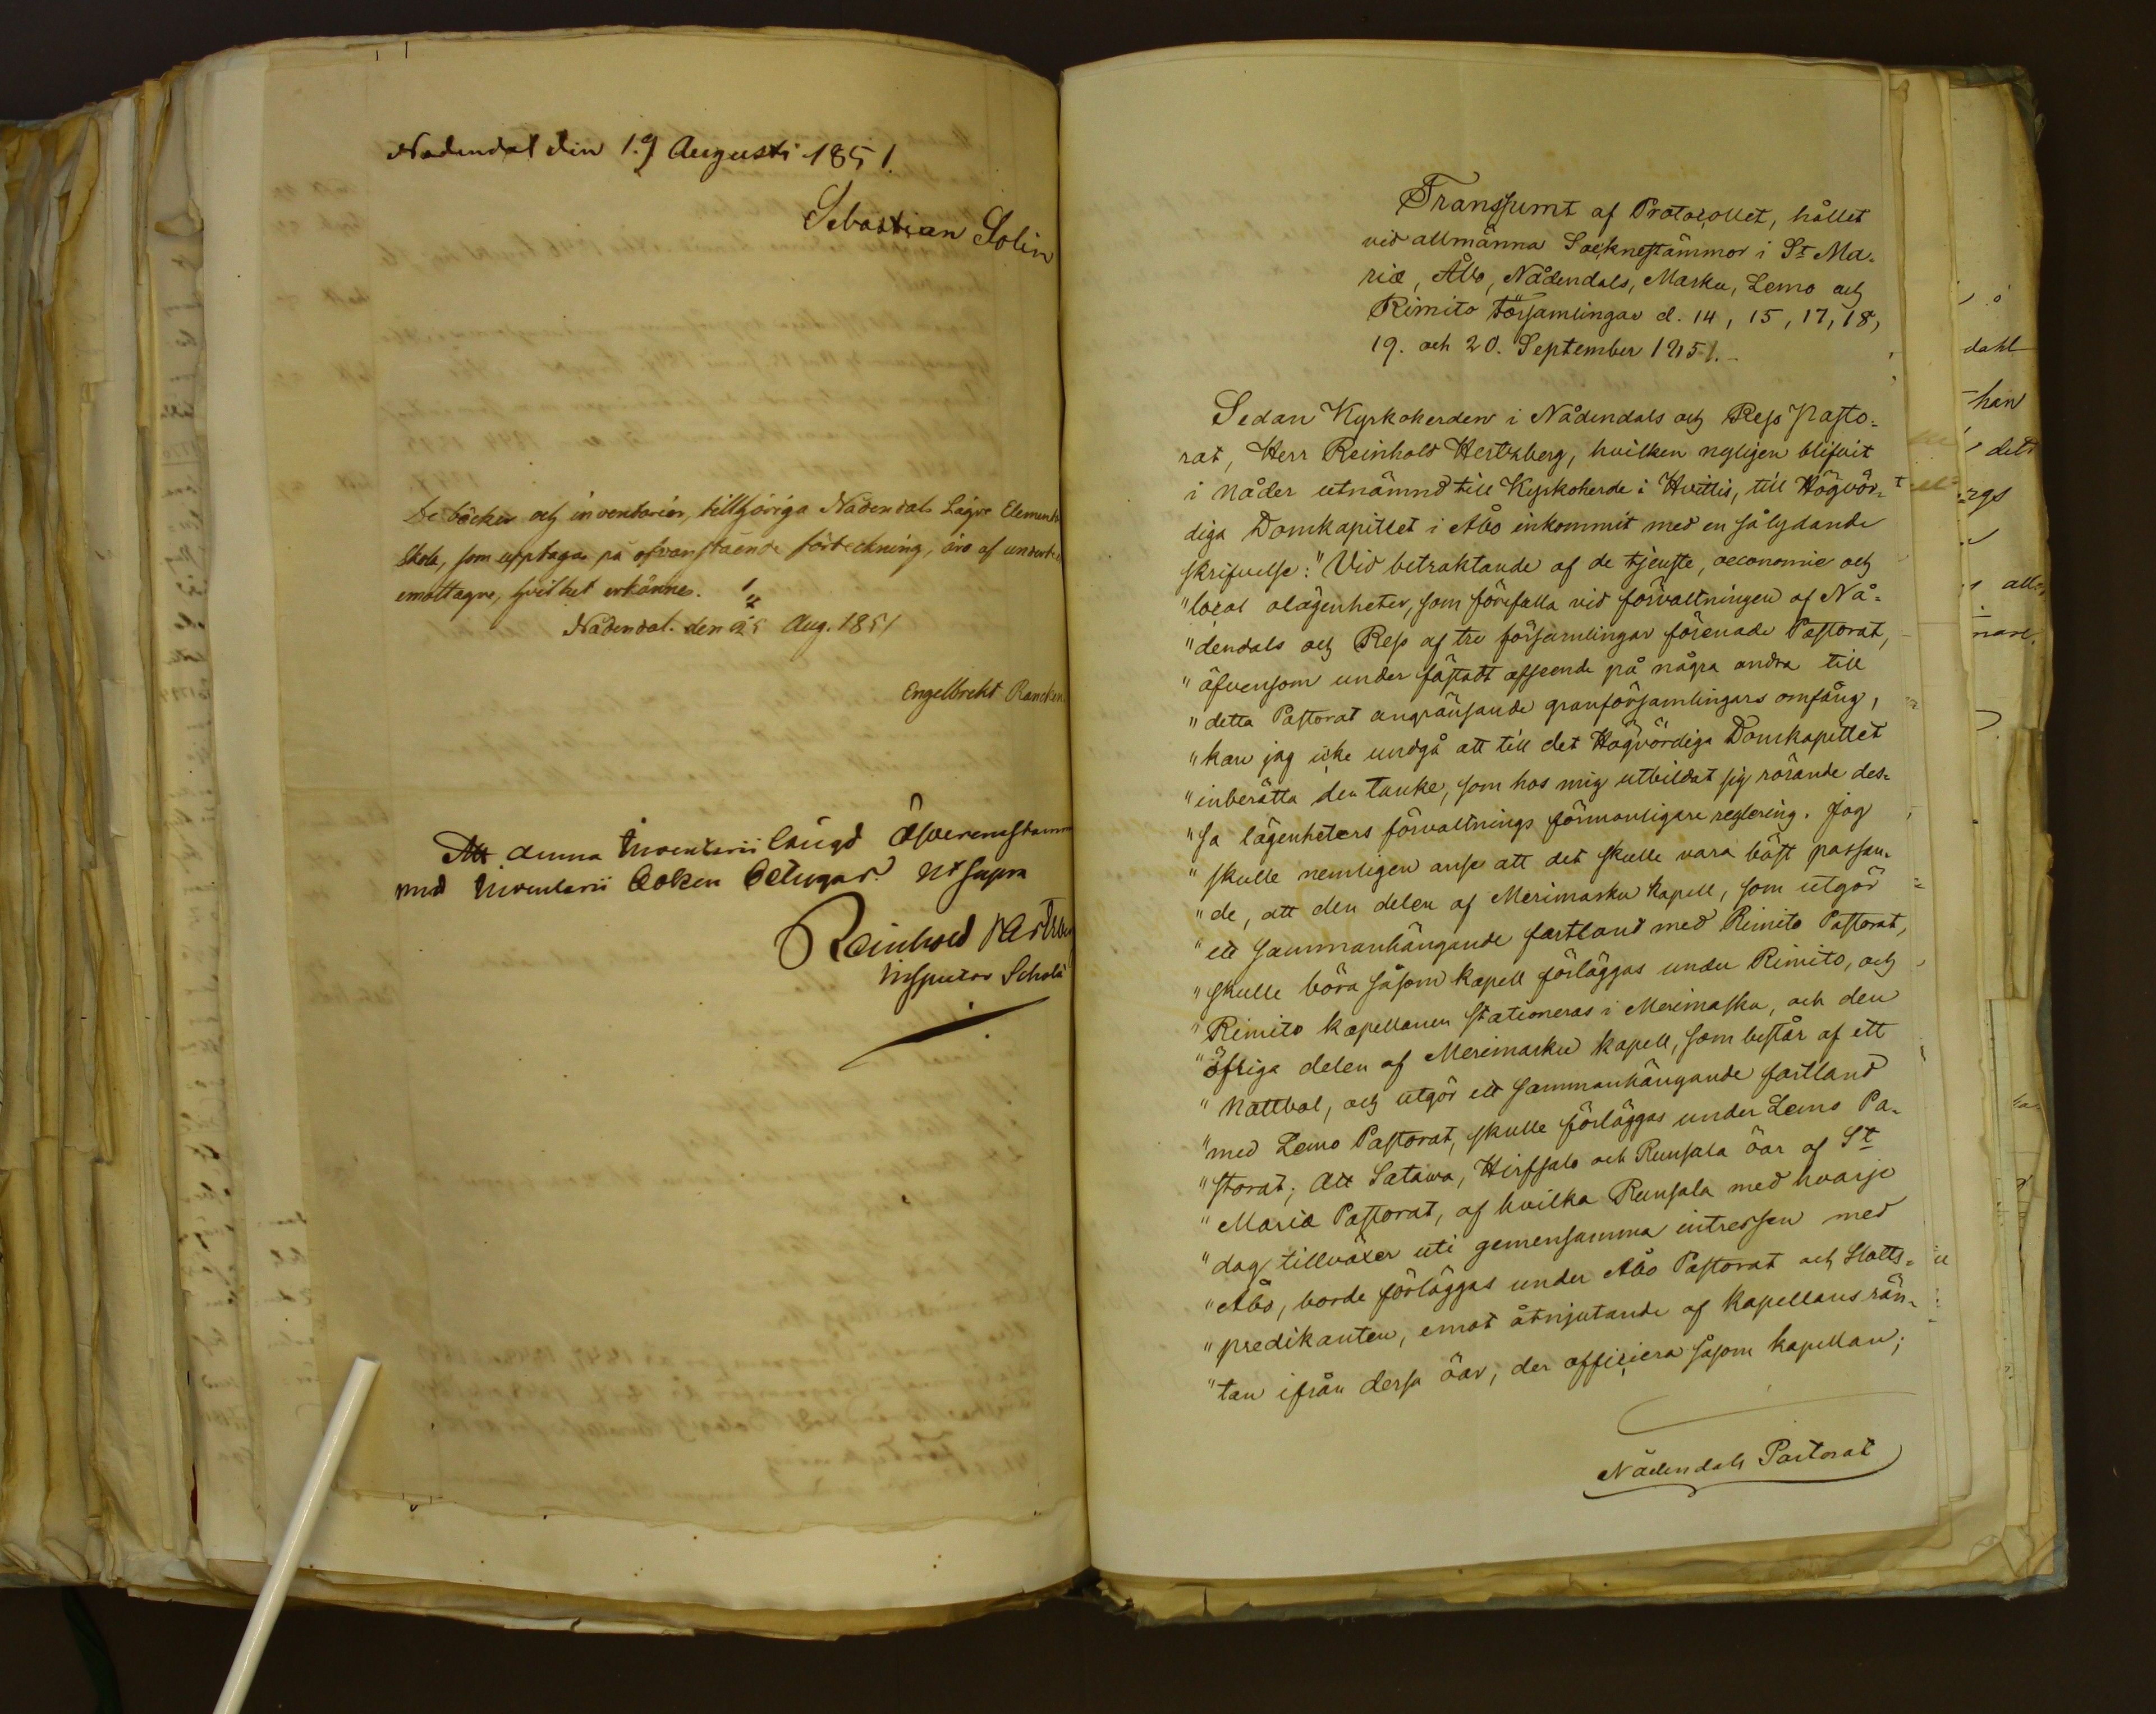 Nådendal den 19 Augusti 1851.
Sebastian Solin
De böcker och inventarier, tillhöriga Nådendals Lägre Element
Skola, som upptagas på ofvanstående förteckning, äro af undert
emottagne, hvilket erkännes.
Nådendal. den 25 Aug. 1851
Engelbrekt Rancken
Att denna Inventarii längd öfverensstämm
med Inventarii boken betygar. Ut supra
Reinhold Hertzbe
Inspector Scholæ
Transsumt af Protocollet, hållet
vid allmänna Socknestämmor i St Ma-
riæ, Åbo, Nådendals, Masku, Lemo och
Rimito Församlingar d. 14, 15, 17, 18,
19. och 20. September 1851.
Sedan Kyrkoherden i Nådendals och Reso Pasto-
rat, Herr Reinhold Hertzberg, hvilken nyligen blifvit
i Nåder utnämnd till Kyrkoherde i Hvittis, till Högvör-
diga Domkapitlet i Åbo inkommit med en så lydande
skrifvelse: "Vid betraktande af de tjenste, oeconomie och
"local olägenheter, som förefalla vid förvaltningen af Nå-
"dendals och Reso af tre församlingar förenade Pastorat,
"äfvensom under fästadt afseende på några andra till
"detta Pastorat angränsande granförsamlingars omfång,
"kan jag icke undgå att till det Högvördiga Domkapitlet
"inberätta den tanke, som hos mig utbildat sig rörande des-
"sa lägenheters förvaltnings förmånligare reglering. Jag
"skulle nemligen anse att det skulle vara bäst passan-
"de, att den delen af Merimasku kapell, som utgör
"ett sammanhängande fastland med Rimito Pastorat,
"skulle böra såsom kapell förläggas under Rimito, och
"Rimito kapellanen stationeras i Merimasku, och den
"öfriga delen af Merimasku kapell, som består af ett
"Nattbol, och utgör ett sammanhängande fastland
"med Lemo Pastorat, skulle förläggas under Lemo Pa-
"storat; Att Satawa, Hirfsalo och Runsala öar af St
"Mariæ Pastorat, af hvilka Runsala med hvarje
"dag tillväxer uti gemensamma intressen med
"Åbo, borde förläggas under Åbo Pastorat och Slotts-
"predikanten, emot åtnjutande af kapellans rän-
"tan ifrån dessa öar, der officiera såsom kapellan;
Nådendals Pastorat
dahl
han
det
rgs
nare.